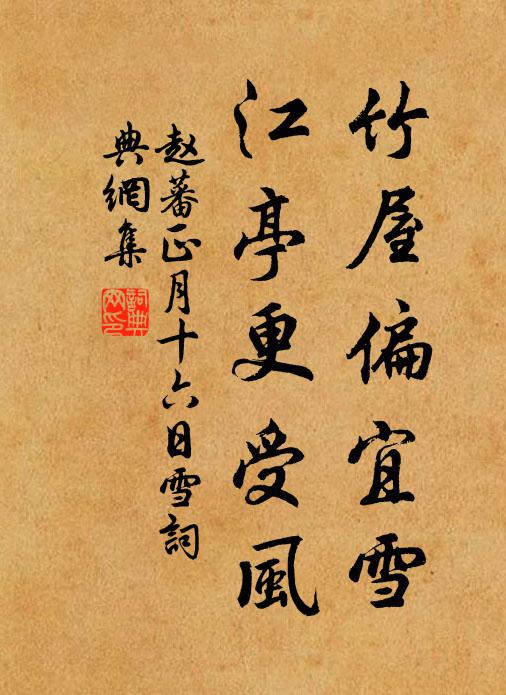 竹屋偏宜雪
江亭更受風
赵蕃正月十六日雪詞
典網集
詞典網印